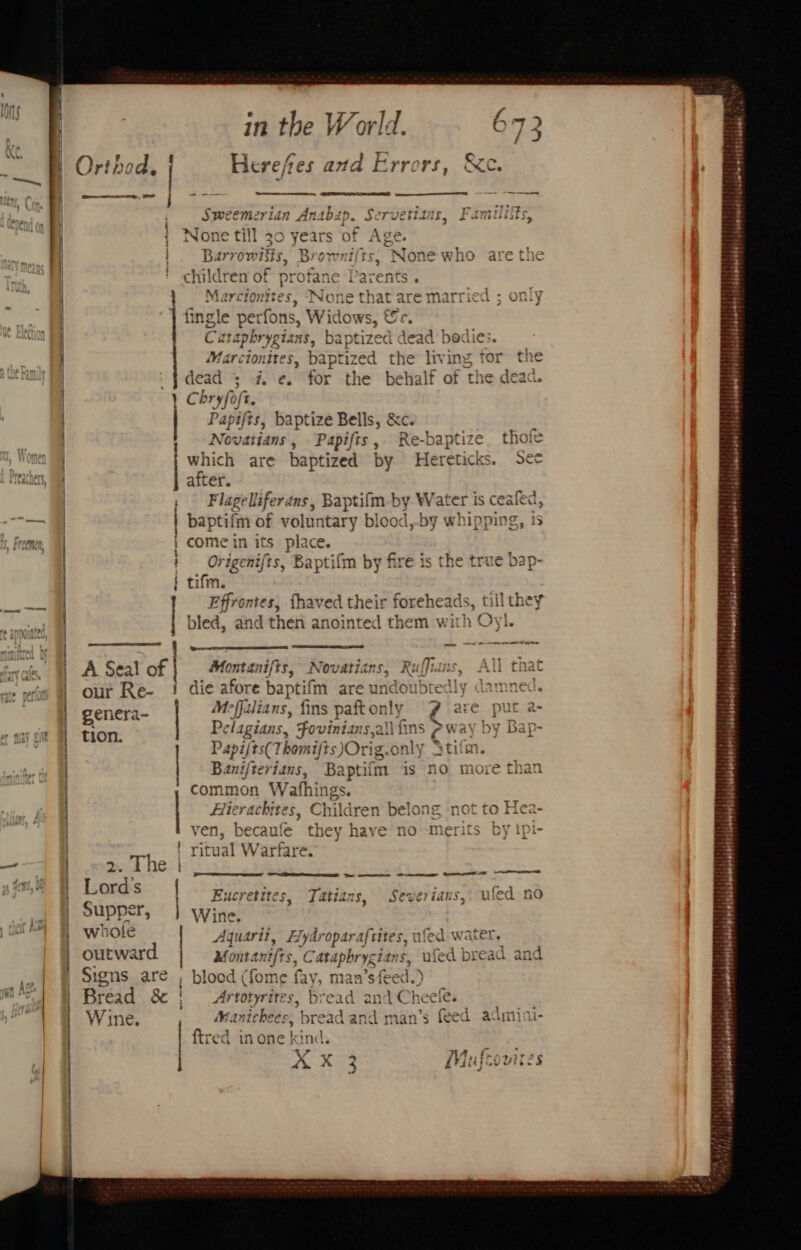 in the World. 673
Orthod. Heresies and Errors, &c.
Sweemerian Anabap. Servetians, Familists,
None till 30 years of Age.
Barrowists, Brownists, None who are the
children of profane Parents.
Marcionites, None that are married ; only
single persons, Widows, &c.
Cataphrygians, baptized dead bodies.
Marcionites, baptized the living for the
dead ; i. e. for the behalf of the dead.
Chrysost.
Papists, baptize Bells, &c.
Novatians, Papists, Re-baptize those
which are baptized by Hereticks. See
after.
Flagelliferans, Baptism by Water is ceased,
baptism of voluntary blood, by whipping, is
come in its place.
Origenists, Baptism by fire is the true bap-
tism.
Effrontes, shaved their foreheads, till they
bled, and then anointed them with Oyl.
A Seal of
our Re-
genera-
tion.
Montanists, Novatians, Ruffians, All that
die afore baptism are undoubtedly damned.
Messalians, sins past only are put a-
Pelagians, Jovinians, all sins way by Bap-
Papists(Thomists)Orig.only tism.
Banisterians, Baptism is no more than
common Washings.
Hierachites, Children belong not to Hea-
ven, because they have no merits by spi-
ritual Warfare.
2. The
Lord's
Supper,
whole
outward
Signs are
Bread &
Wine.
Eucretites, Tatians, Severians, used no
Wine.
Aquarii, Hydroparastites, used water.
Montanists, Cataphrygians, used bread and
blood (some say, man's seed.)
Artotyrites, bread and Cheese.
Manichees, bread and man's seed admini-
stred in one kind.
X x 3 Muscovites